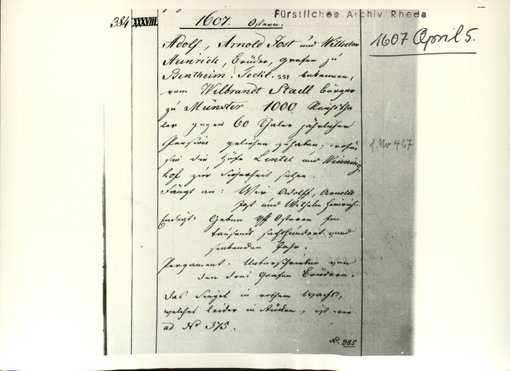 Fürstliches Archiv Rheda
384 XXXVIII. 1607. Ostern.
1607 April 5.
Adolf, Arnold Jost und Wilhelm
Heinrich, Brüder, Grafen zu
Bentheim Teckl. bekennen,
von Wilbrandt Stadl Bürger
zu Münster 1000 Reichstha
ler gegen 60 Thaler jährlicher
Pension geliehen zu haben, wofür
sie die Höfe Lintel und Winning
hof zur Sicherheit setzen.
Fängt an: Wir Adolff, Arnoldt
Jost und Wilhelm Henrich
Endigt: Geben uff Ostern Im
tausendt sechshundert unnd
siebenden Jahr.
Pergament. Unterschrieben von
den drei Grafen Brüdern.
Das Siegel in rothem Wachs,
welches leider in Stücken, ist wie
ad No 373.
f. No 467
No. 265